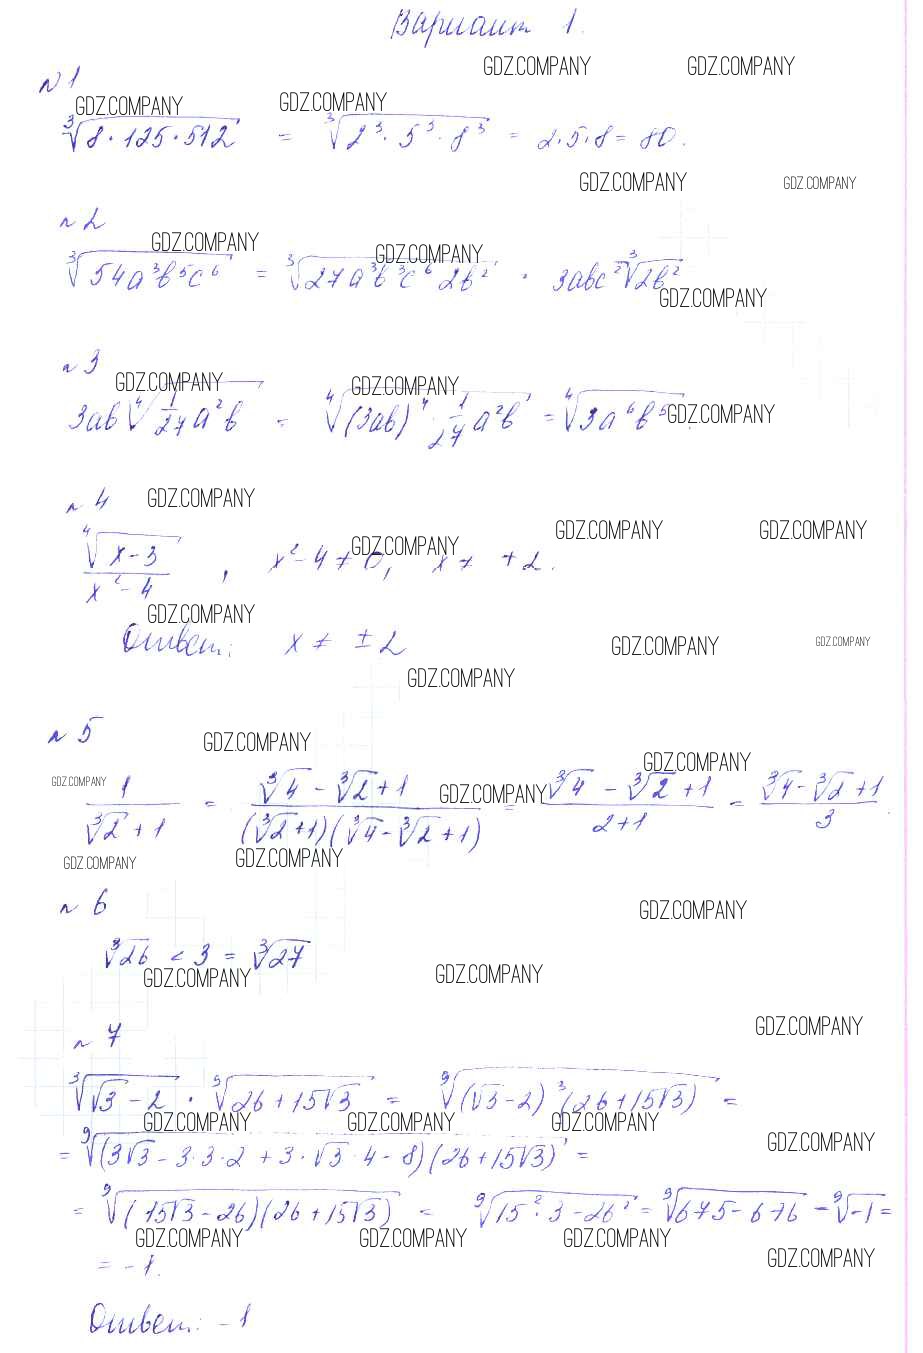 Вариант 1.
GDZ.COMPANY GDZ.COMPANY
№1
GDZ.COMPANY GDZ.COMPANY
∛(8·125·512) = ∛(2³·5³·8³) = 2·5·8 = 80.
GDZ.COMPANY GDZ.COMPANY
№2
GDZ.COMPANY GDZ.COMPANY
∛(54a³b⁵c⁶) = ∛(27a³b³c⁶2b²) · 3abc²∛(2b²)
GDZ.COMPANY
№3
GDZ.COMPANY GDZ.COMPANY
3ab ∜(1/27 a²b) = ∜((3ab)⁴·1/27 a²b) = ∜(3a⁶b⁵) GDZ.COMPANY
№4 GDZ.COMPANY
GDZ.COMPANY GDZ.COMPANY GDZ.COMPANY
∜(x-3)/(x²-4), x²-4≠0, x≠ +2.
GDZ.COMPANY
Ответ: x ≠ ±2 GDZ.COMPANY GDZ.COMPANY
GDZ.COMPANY
№5 GDZ.COMPANY
GDZ.COMPANY GDZ.COMPANY GDZ.COMPANY
1/(∛2+1) = (∛4-∛2+1)/((∛2+1)(∛4-∛2+1)) = (∛4-∛2+1)/(2+1) = (∛4-∛2+1)/3.
GDZ.COMPANY GDZ.COMPANY
№6 GDZ.COMPANY
∛26 < 3 = ∛27
GDZ.COMPANY GDZ.COMPANY
№7 GDZ.COMPANY
∛(√3-2) · ⁹√(26+15√3) = ⁹√((√3-2)³(26+15√3)) =
GDZ.COMPANY GDZ.COMPANY GDZ.COMPANY GDZ.COMPANY
= ⁹√((3√3-3·3·2+3·√3·4-8)(26+15√3)) =
= ⁹√((15√3-26)(26+15√3)) = ⁹√(15²·3-26²) = ⁹√(675-676) = ⁹√(-1) =
GDZ.COMPANY GDZ.COMPANY GDZ.COMPANY GDZ.COMPANY
= -1.
Ответ: -1